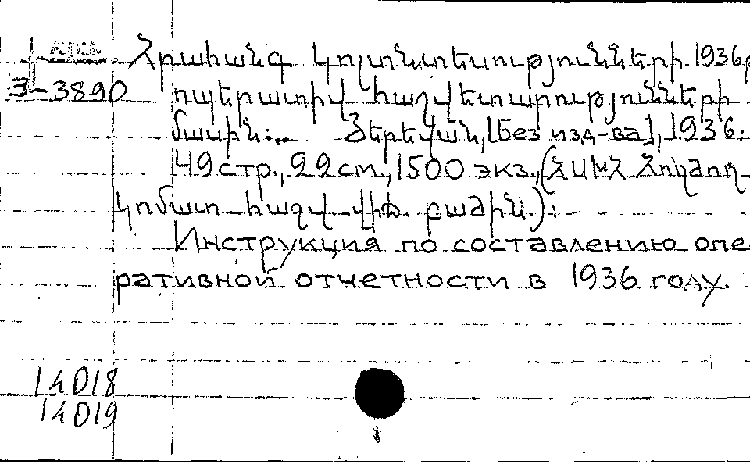 Հրահանգ կոլտնտեսությունների 1936թ
3-3890
օպերատիվ հաշվետվությունների
մասին:.. Յերեվան, [без изд-ва], 1936:
49 стр., 22 см., 1500 экз., (ՀՍԽՀ Հողժող-
կոմատ հաշվ-վիճ. բաժին.):
Инструкция по составлению опе-
ративной отчетности в 1936 году.
14018
14019